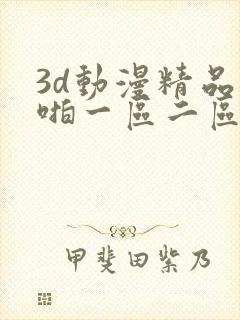 3d動漫精品
啪一區二區
甲斐田紫乃